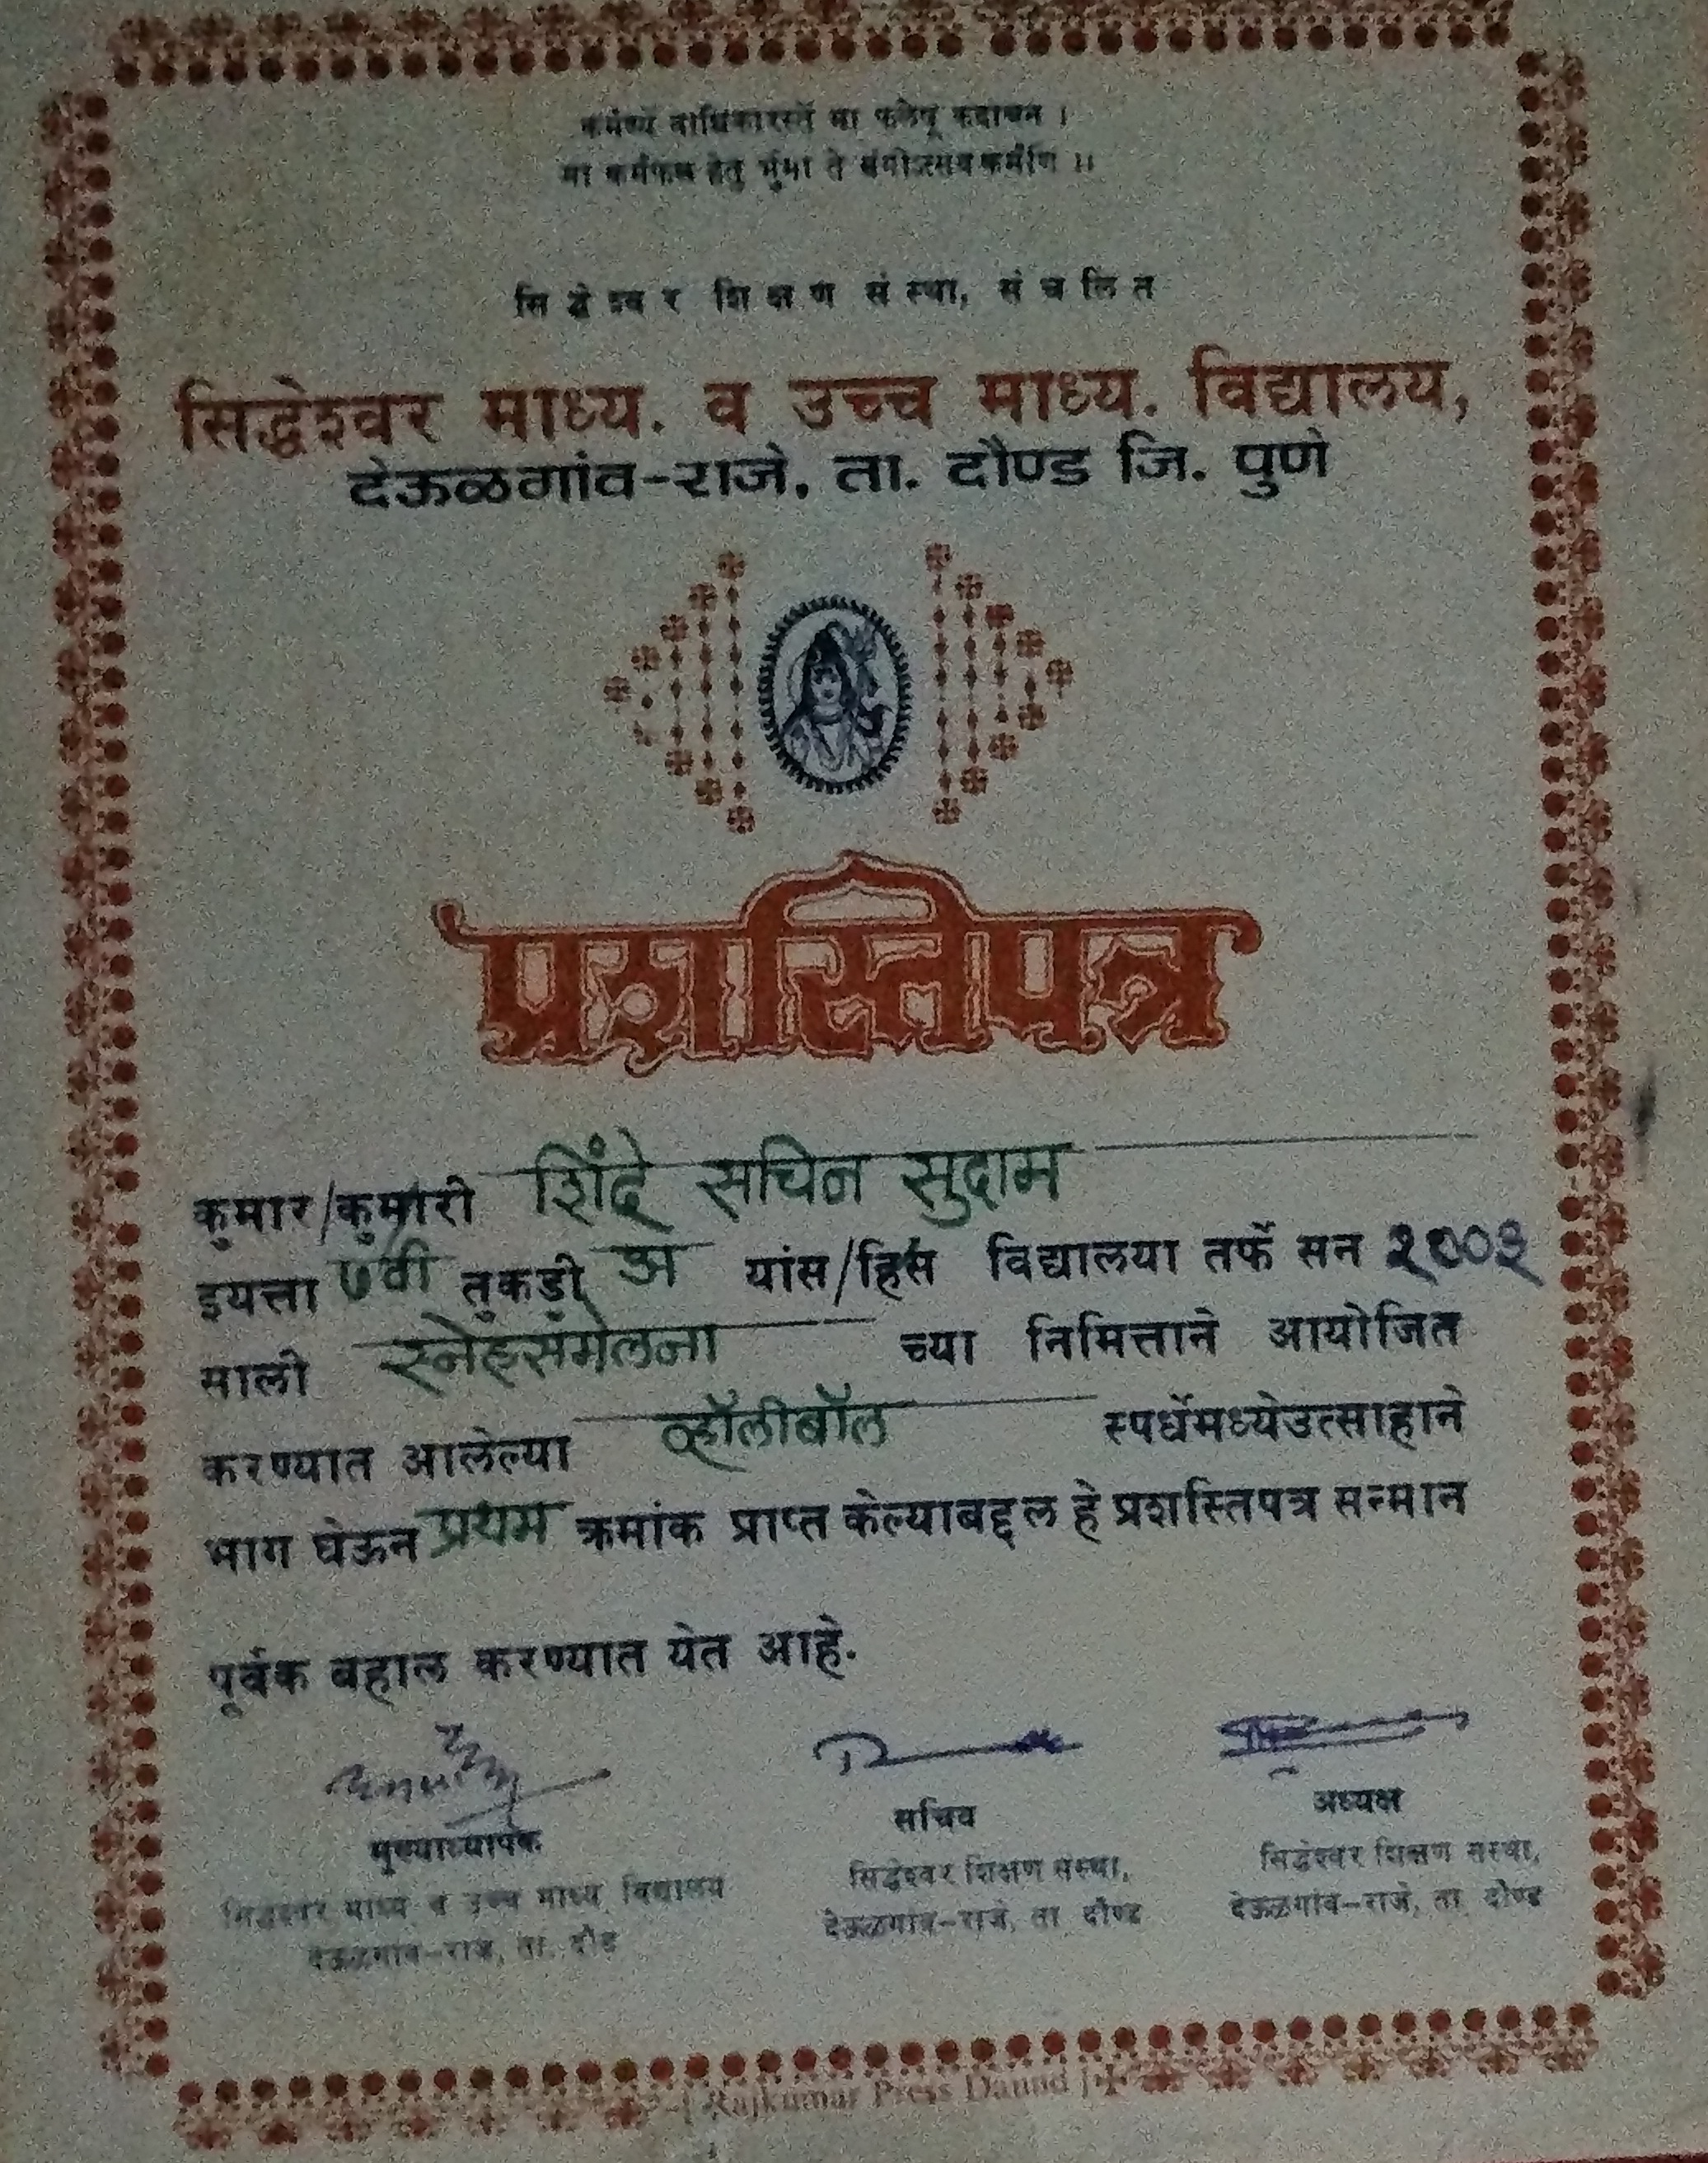 कर्मण्ये वाधिकारस्ते मा फलेषू कदाचन ।
मा कर्मफल हेतु र्भुमा ते संगोऽत्सवकर्मणि ।।
सिद्धेश्वर शिक्षण संस्था, संचलित
सिद्धेश्वर माध्य. व उच्च माध्य. विद्यालय,
देऊळगांव-राजे, ता. दौण्ड जि. पुणे
प्रशस्तिपत्र
कुमार/कुमारी शिंदे सचिन सुदाम
इयत्ता ७वी तुकडी अ यांस/हिस विद्यालया तर्फे सन २००३
साली स्नेहसंमेलना च्या निमित्ताने आयोजित
करण्यात आलेल्या व्हॉलीबॉल स्पर्धेमध्येउत्साहाने
भाग घेऊन प्रथम क्रमांक प्राप्त केल्याबद्दल हे प्रशस्तिपत्र सन्मान
पूर्वक बहाल करण्यात येत आहे.
मुख्याध्यापक
सिद्धेश्वर माध्य. व उच्च माध्य. विद्यालय
देऊळगांव-राजे, ता. दौंड
सचिव
सिद्धेश्वर शिक्षण संस्था,
देऊळगांव-राजे, ता. दौण्ड
अध्यक्ष
सिद्धेश्वर शिक्षण संस्था,
देऊळगांव-राजे, ता. दौण्ड
Rajkumar Press Daund